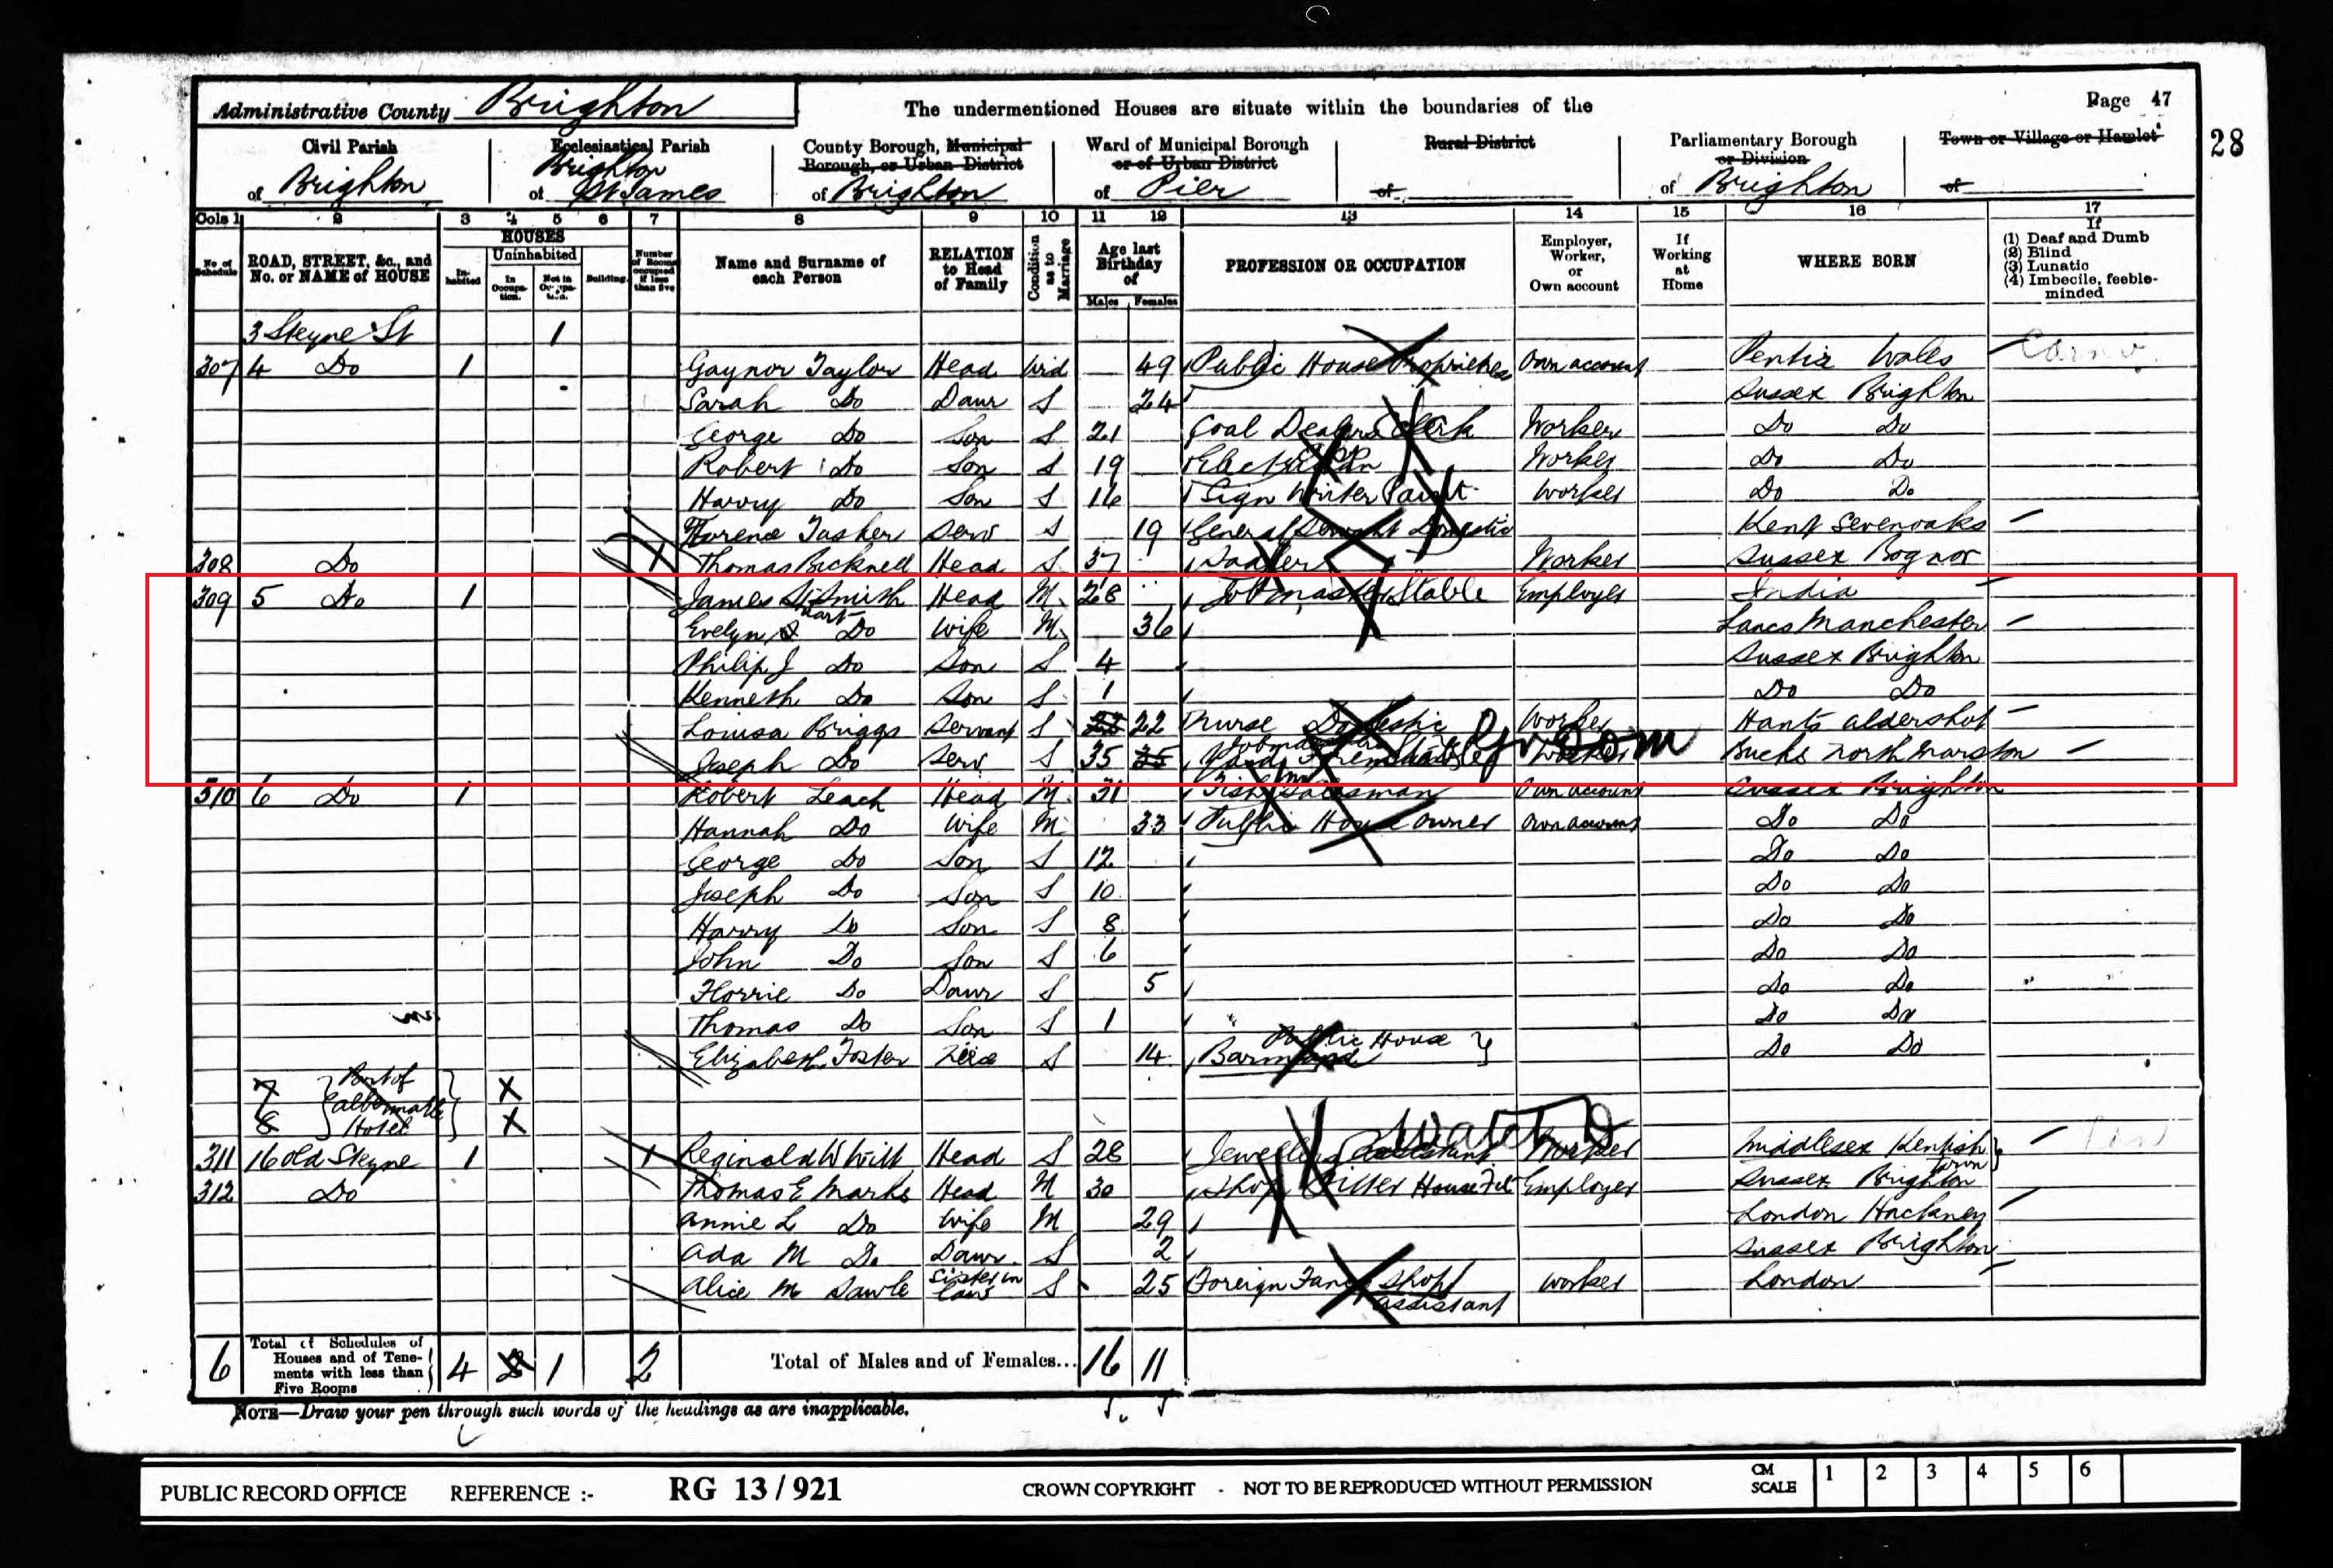 Page 47
28
Administrative County Brighton
The undermentioned Houses are situate within the boundaries of the
Civil Parish of Brighton
Ecclesiastical Parish of Brighton St James
County Borough, Municipal Borough, or Urban District of Brighton
Ward of Municipal Borough or of Urban District of Pier
Rural District of
Parliamentary Borough or Division of Brighton
Town or Village or Hamlet of
Cols 1 2 3 4 5 6 7 8 9 10 11 12 13 14 15 16 17
No. of Schedule
ROAD, STREET, &c., and No. or NAME of HOUSE
HOUSES
Inhabited
Uninhabited
In Occupation.
Not in Occupation.
Building.
Number of Rooms occupied if less than five
Name and Surname of each Person
RELATION to Head of Family
Condition as to Marriage
Age last Birthday of
Males Females
PROFESSION OR OCCUPATION
Employer, Worker, or Own account
If Working at Home
WHERE BORN
If (1) Deaf and Dumb (2) Blind (3) Lunatic (4) Imbecile, feeble-minded
3 Steyne St 1
307 4 Do 1 Gaynor Taylor Head Wid 49 Public House Proprietress Own account Wales
Sarah Do Daur S 24 Sussex Brighton
George Do Son S 21 Coal Dealers Clerk Worker Do Do
Robert Do Son S 19 Electrician Worker Do Do
Harry Do Son S 16 Sign Writer Paint Worker Do Do
Florence Tasker Serv S 19 General Servant Domestic Kent Sevenoaks
308 Do 1 Thomas Bicknell Head S 37 Sadler Worker Sussex Bognor
309 5 Do 1 James Smith Head M 28 Jobmaster Stable Employer India
Evelyn Do Wife M 36 Lancs Manchester
Philip J Do Son S 4 Sussex Brighton
Kenneth Do Son S 1 Do Do
Louisa Briggs Servant S 22 Nurse Domestic Worker Hants Aldershot
Joseph Do Serv S 35 Groom Worker Bucks North Marston
310 6 Do 1 Robert Leach Head M 31 Fish Salesman Own account Sussex Brighton
Hannah Do Wife M 33 Public House Owner Own account Do Do
George Do Son S 12 Do Do
Joseph Do Son S 10 Do Do
Harry Do Son S 8 Do Do
John Do Son S 6 Do Do
Florrie Do Daur S 5 Do Do
Thomas Do Son S 1 Do Do
Elizabeth Foster S 14 Public House Barmaid Do Do
7 8 Part of Albermarle Hotel X X
311 16 Old Steyne 1 1 Reginald W Witt Head S 28 Jewellers Assistant Watch D Worker Middlesex Kentish Town
312 Do Thomas E Marks Head M 30 Shop Fitter House Fit Employer Sussex Brighton
Annie L Do Wife M 29 London Hackney
Ada M Do Daur S 2 Sussex Brighton
Alice M Sawle Sister in law S 25 Foreign Fancy Shop Assistant Worker London
6 Total of Schedules of Houses and of Tenements with less than Five Rooms 4 2 1 2 Total of Males and of Females... 16 11
NOTE—Draw your pen through such words of the headings as are inapplicable.
PUBLIC RECORD OFFICE REFERENCE :- RG 13 / 921 CROWN COPYRIGHT - NOT TO BE REPRODUCED WITHOUT PERMISSION CM SCALE 1 2 3 4 5 6